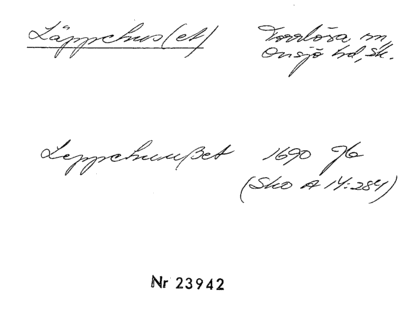 Läppehus(et) Torrlösa sn,
Onsjö hd, Sk.
Leppehuußet 1690 Jb
(Sko A 14:284)
Nr 23942